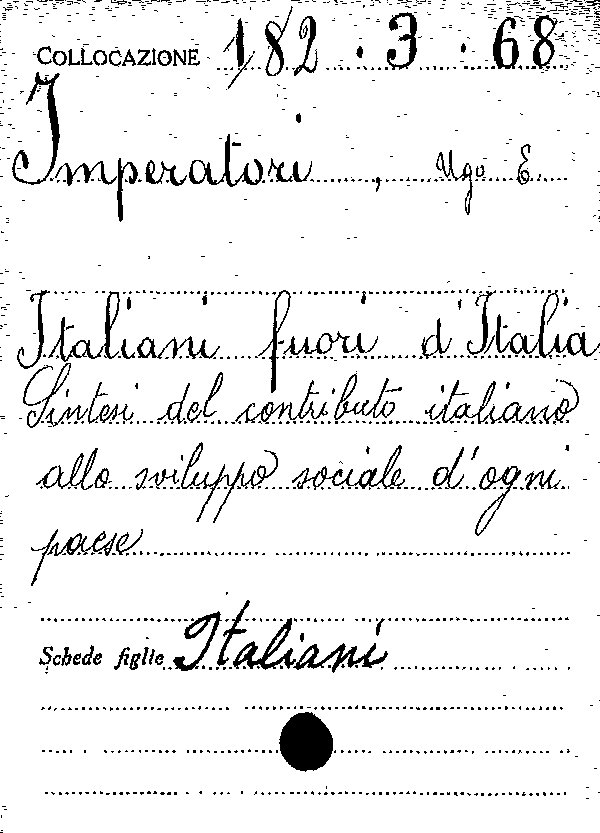 COLLOCAZIONE 182.3.68
Imperatori, Ugo E.
Italiani fuori d'Italia
Sintesi del contributo italiano
allo sviluppo sociale d'ogni
paese
Schede figlie Italiani